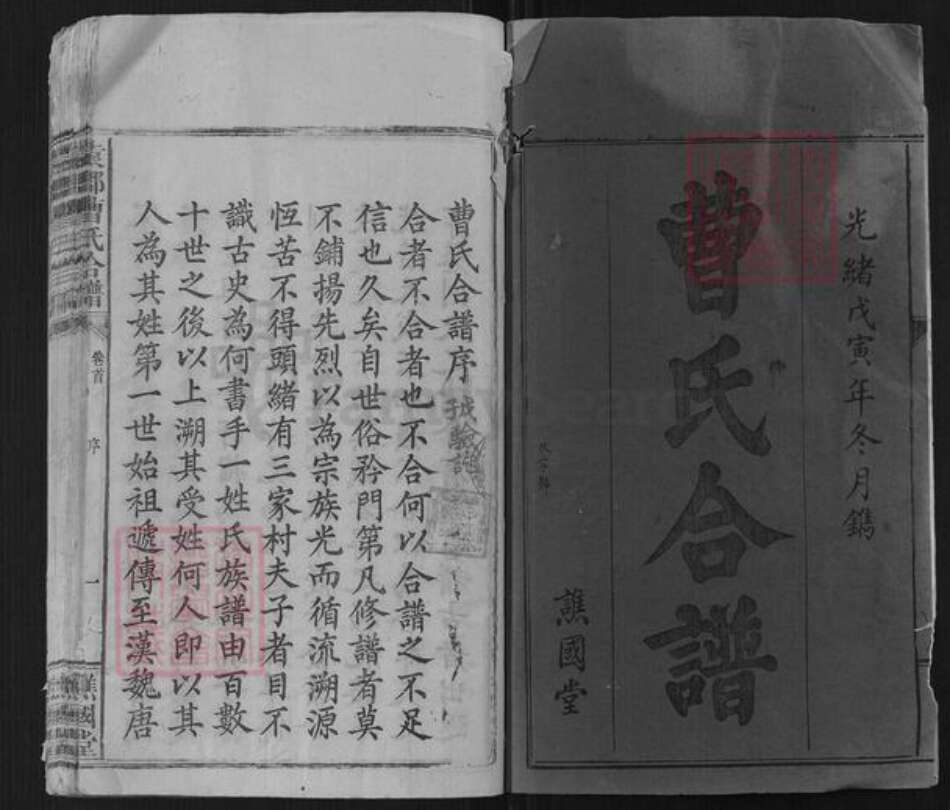 光緒戊寅年冬月鐫
曹氏合譜
譙國堂
曹氏合譜序
合者不合者也不合何以合譜之不足
信也久矣自世俗矜門第凡修譜者莫
不鋪揚先烈以為宗族光而循流溯源
恆苦不得頭緒有三家村夫子者目不
識古史為何書手一姓氏族譜由百數
十世之後以上溯其受姓何人即以其
人為其姓第一世始祖遞傳至漢魏唐
曹氏合譜
卷首
序
一
譙國堂